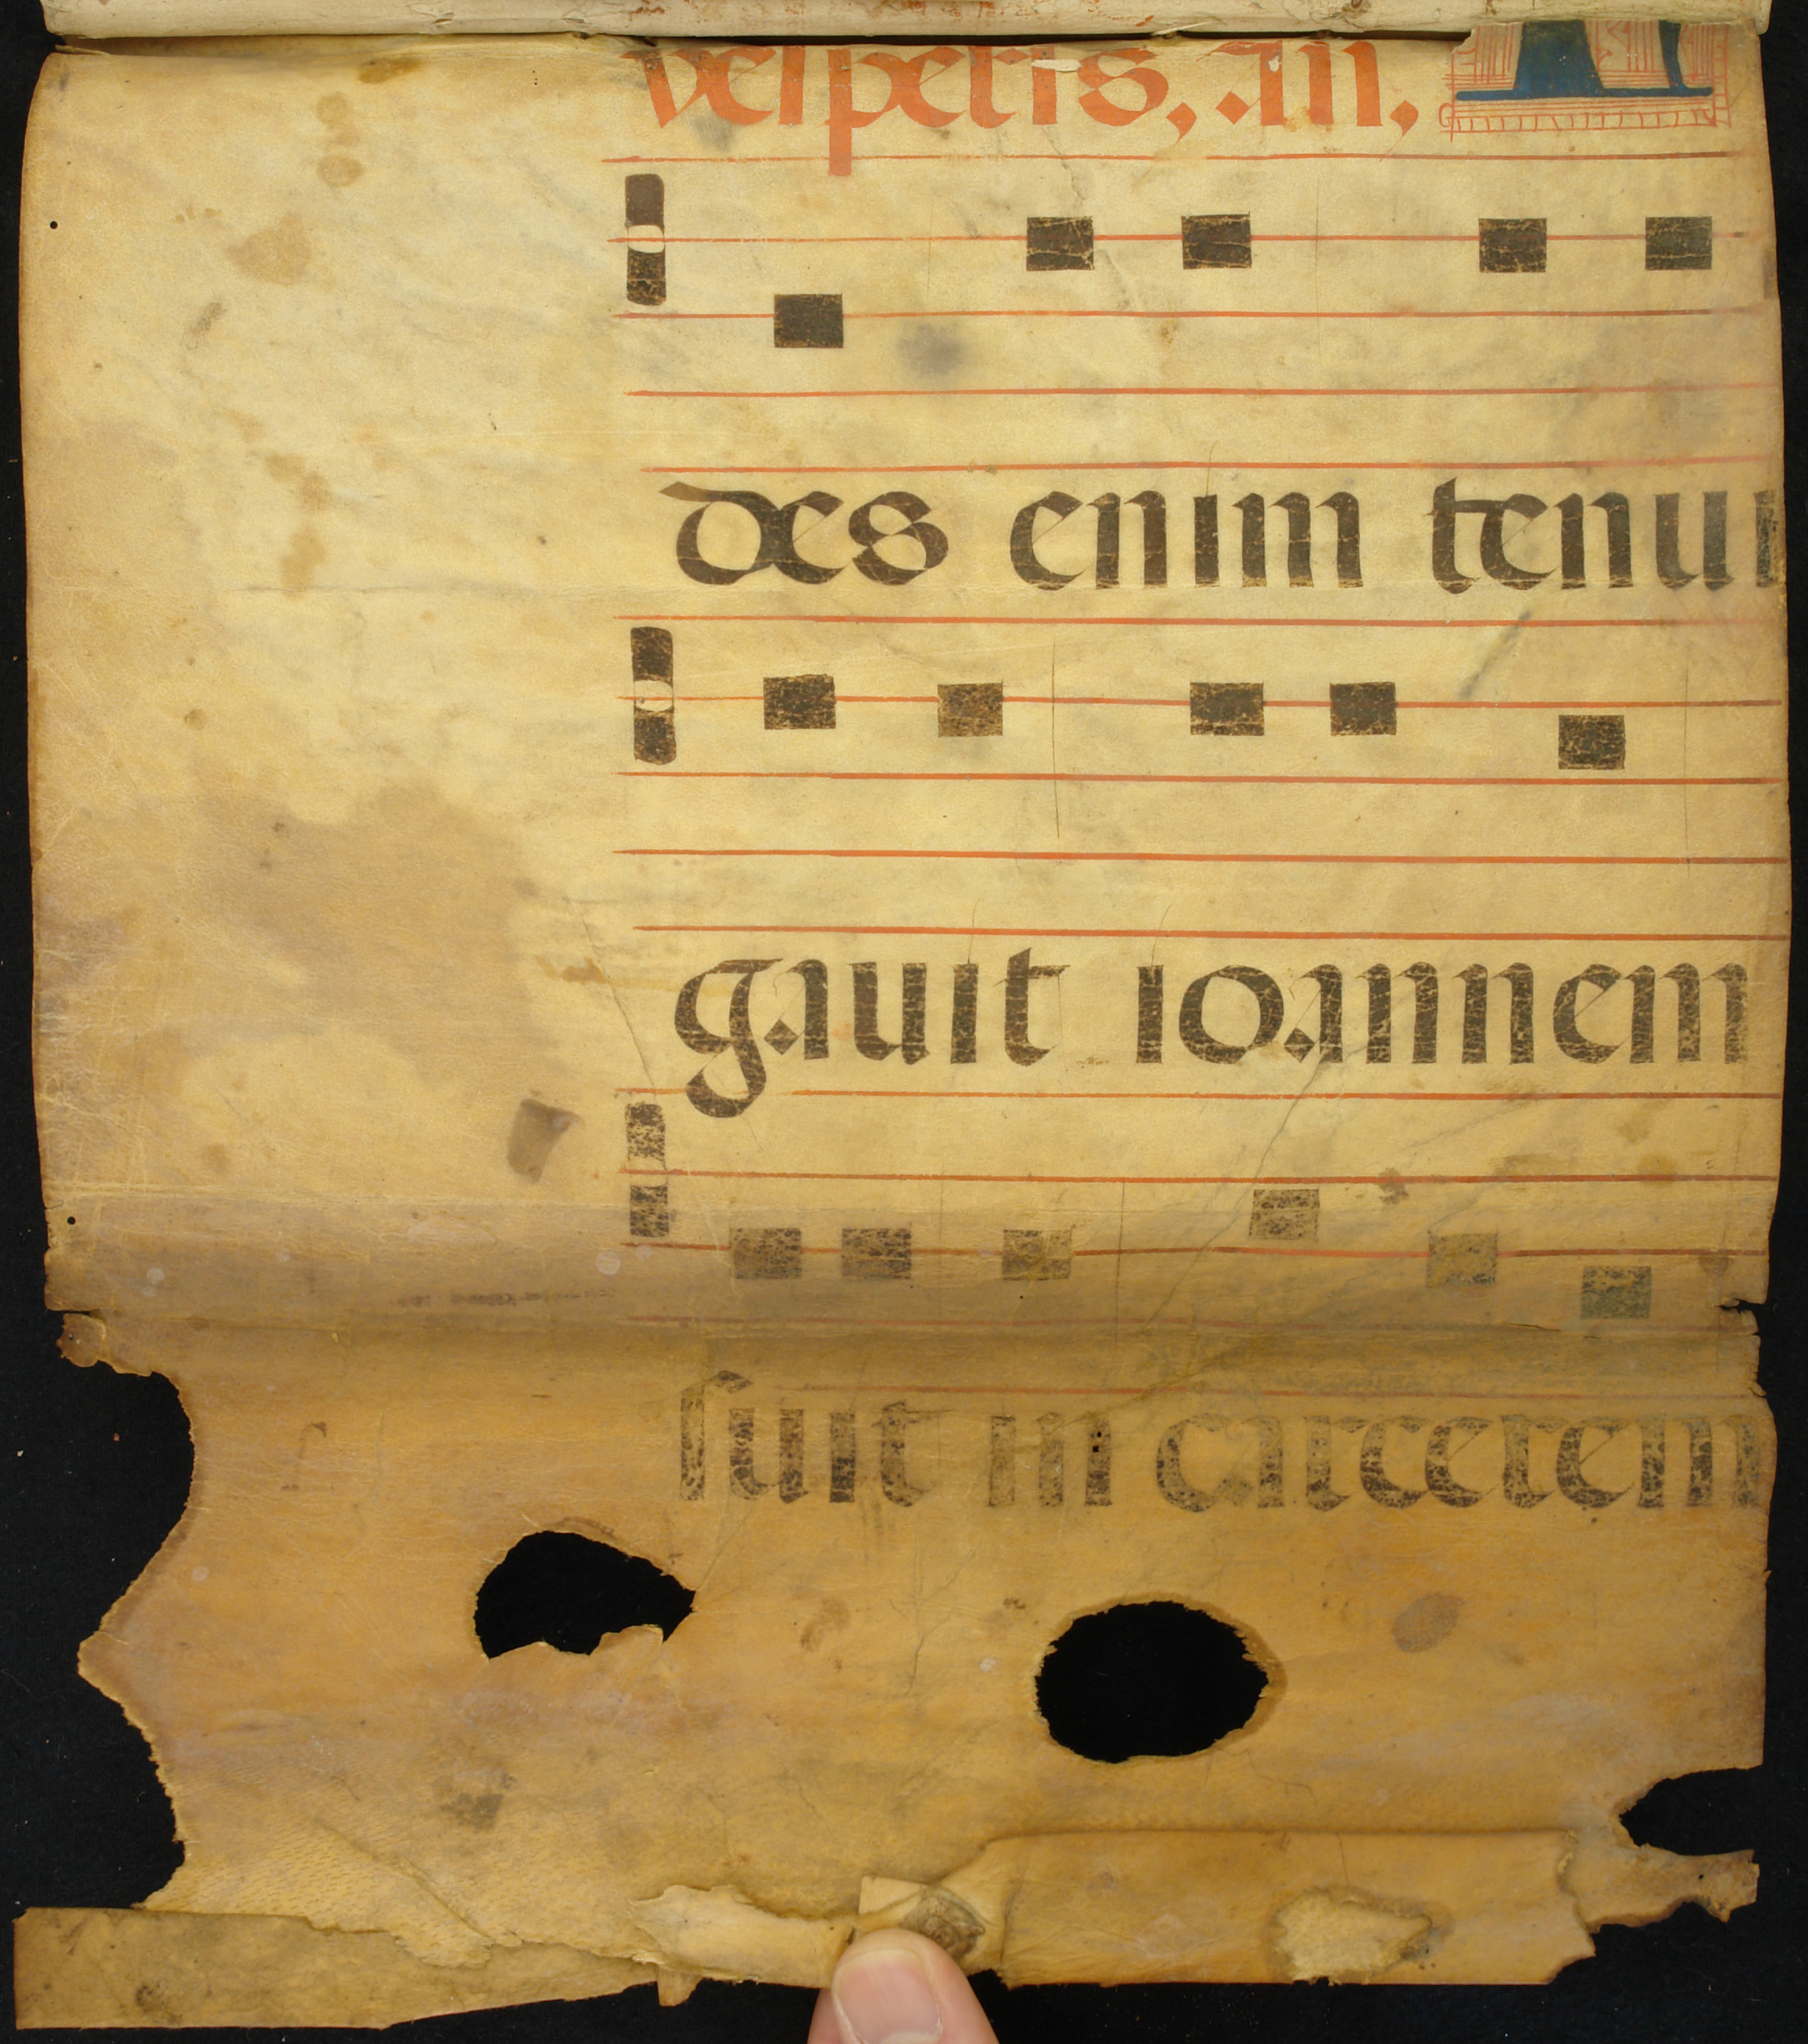 vesperis, an,
des enim tenui
gauit ioannem
suit in carcerem